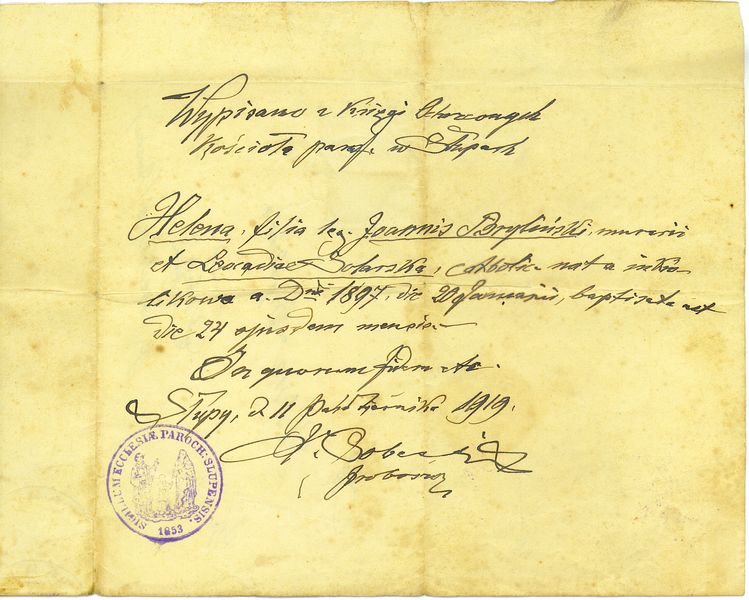 Wypisano z Księgi Ochrzconych
Kościoła paraf. w Słupach
Helena, filia leg. Joannis Bryliński, murarii
et Leocadiae Solarska, catholic. nata in Kro-
likowo a. Dni 1897, die 20 Januarii, baptisata est
die 24 ejusdem mensis.
In quorum fidem etc.
Słupy, d. 11 Października 1919.
X. Sobes
proboszcz
SIGILLUM ECCLESIÆ PAROCH: SLUPENSIS.
1853